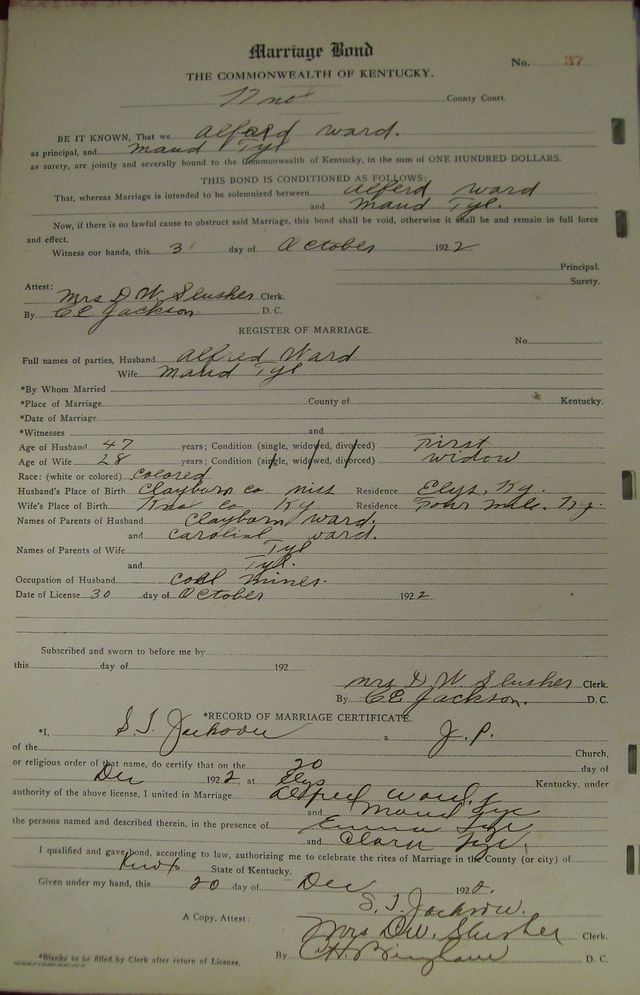 Marriage Bond
No. 37
THE COMMONWEALTH OF KENTUCKY.
Knox County Court.
BE IT KNOWN, That we Alferd Ward.
as principal, and Maud Tyl
as surety, are jointly and severally bound to the Commonwealth of Kentucky, in the sum of ONE HUNDRED DOLLARS.
THIS BOND IS CONDITIONED AS FOLLOWS:
That, whereas Marriage is intended to be solemnized between Alferd Ward
and Maud Tyl.
Now, if there is no lawful cause to obstruct said Marriage, this bond shall be void, otherwise it shall be and remain in full force
and effect.
Witness our hands, this 3 day of October 1922
Principal.
Surety.
Attest:
Mrs D W Slusher Clerk.
By CE Jackson D. C.
REGISTER OF MARRIAGE.
No.
Full names of parties, Husband Alfred Ward
Wife Maud Tyl
*By Whom Married
*Place of Marriage County of Kentucky.
*Date of Marriage
*Witnesses and
Age of Husband 47 years; Condition (single, widowed, divorced) First
Age of Wife 28 years; Condition (single, widowed, divorced) widow
Race: (white or colored) Colored
Husband's Place of Birth Clayborn Co. Miss Residence Elys, Ky.
Wife's Place of Birth Knox Co. Ky Residence Four Mile. Ky.
Names of Parents of Husband Clayborn Ward.
and Caroline Ward.
Names of Parents of Wife Tyl
and Tyl.
Occupation of Husband Coal Mines.
Date of License 30 day of October 1922
Subscribed and sworn to before me by
this day of 192
Mrs D W Slusher Clerk.
By CE Jackson. D. C.
*RECORD OF MARRIAGE CERTIFICATE.
*I, S. J. Jackson a J. P.
of the Church,
or religious order of that name, do certify that on the 20 day of
Dec 1922, at Elys Kentucky, under
authority of the above license, I united in Marriage Alfred Ward
and Maud Tye
the persons named and described therein, in the presence of Emma Tye
and Clara Tye.
I qualified and gave bond, according to law, authorizing me to celebrate the rites of Marriage in the County (or city) of
Knox State of Kentucky.
Given under my hand, this 20 day of Dec 1922.
S. J. Jackson.
A Copy, Attest: Mrs D.W. Slusher Clerk.
By D. C.
*Blanks to be filled by Clerk after return of License.